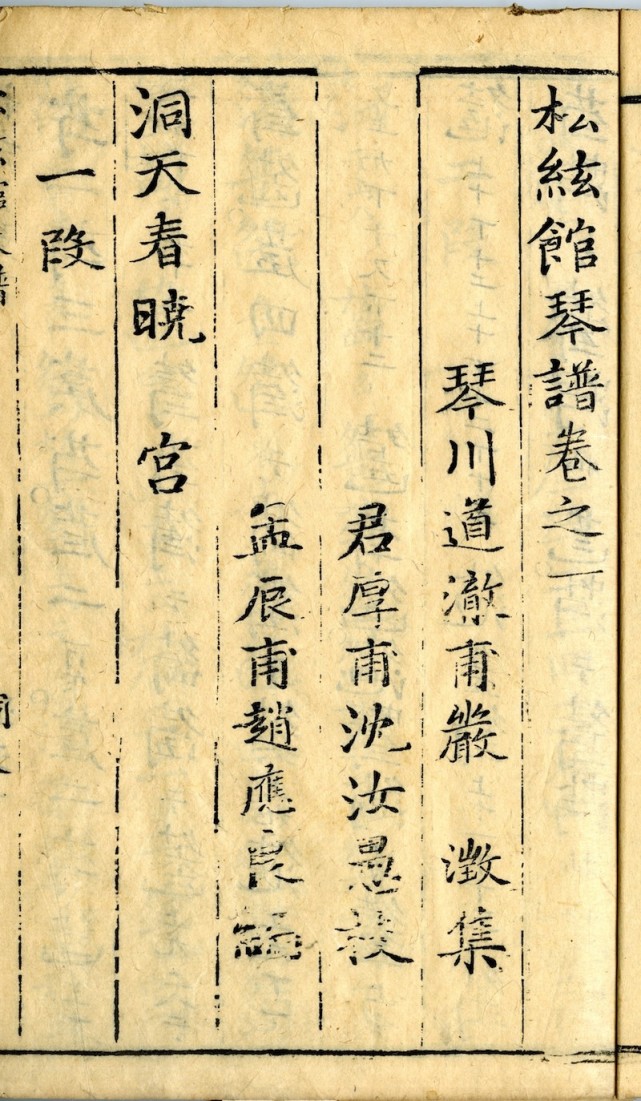 松絃館琴譜卷之一
琴川道澈甫嚴 澂集
君厚甫沈汝愚校
孟辰甫趙應良編
洞天春曉 宮
一段